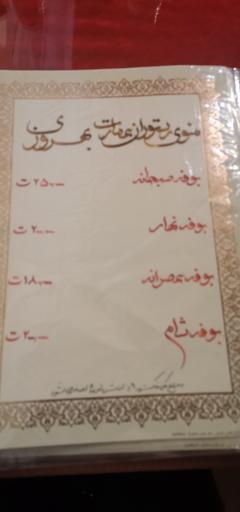 منوی رستوران عمارت بهروزی
بوفه صبحانه ۲۵۰،۰۰۰ ت
بوفه نهار ۲۰۰،۰۰۰ ت
بوفه عصرانه ۱۸۰،۰۰۰ ت
بوفه شام ۲۰۰،۰۰۰ ت